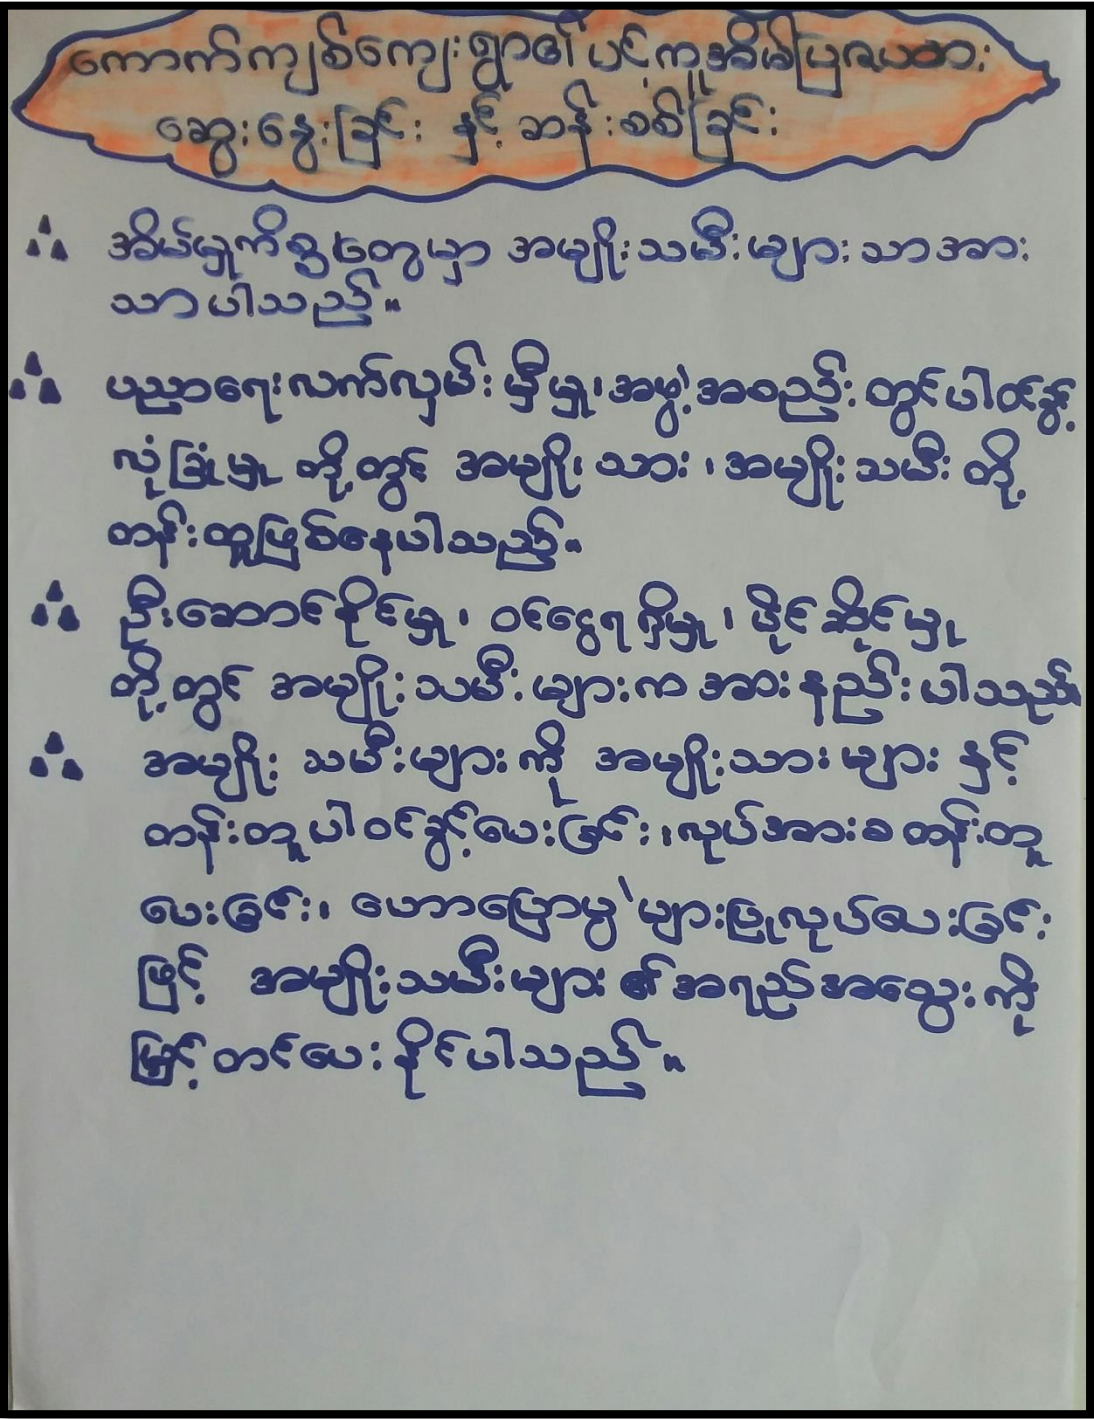 ကောက်ကျစ်ကျေးရွာ၏ ပင့်ကူအိမ်ပြဇယား
ဆွေးနွေးခြင်း နှင့် ဆန်းစစ်ခြင်း
အိမ်မှုကိစ္စတွေမှာ အမျိုးသမီးများသာအား
သာပါသည်။
ပညာရေးလက်လှမ်းမှီမှု၊ အဖွဲ့အစည်းတွင်ပါဝင်ခွင့်
လုံခြုံမှု တို့တွင် အမျိုးသား ၊ အမျိုးသမီး တို့
တန်းတူဖြစ်နေပါသည်။
ဦးဆောင်နိုင်မှု၊ ဝင်ငွေရရှိမှု၊ ပိုင်ဆိုင်မှု
တို့တွင် အမျိုးသမီးများက အားနည်းပါသည်။
အမျိုး သမီးများကို အမျိုးသားများ နှင့်
တန်းတူပါဝင်ခွင့်ပေးခြင်း ၊လုပ်အားခ တန်းတူ
ပေးခြင်း၊ ဟောပြောပွဲများပြုလုပ်ပေးခြင်း
ဖြင့် အမျိုးသမီးများ၏ အရည်အသွေးကို
မြှင့်တင်ပေးနိုင်ပါသည်။